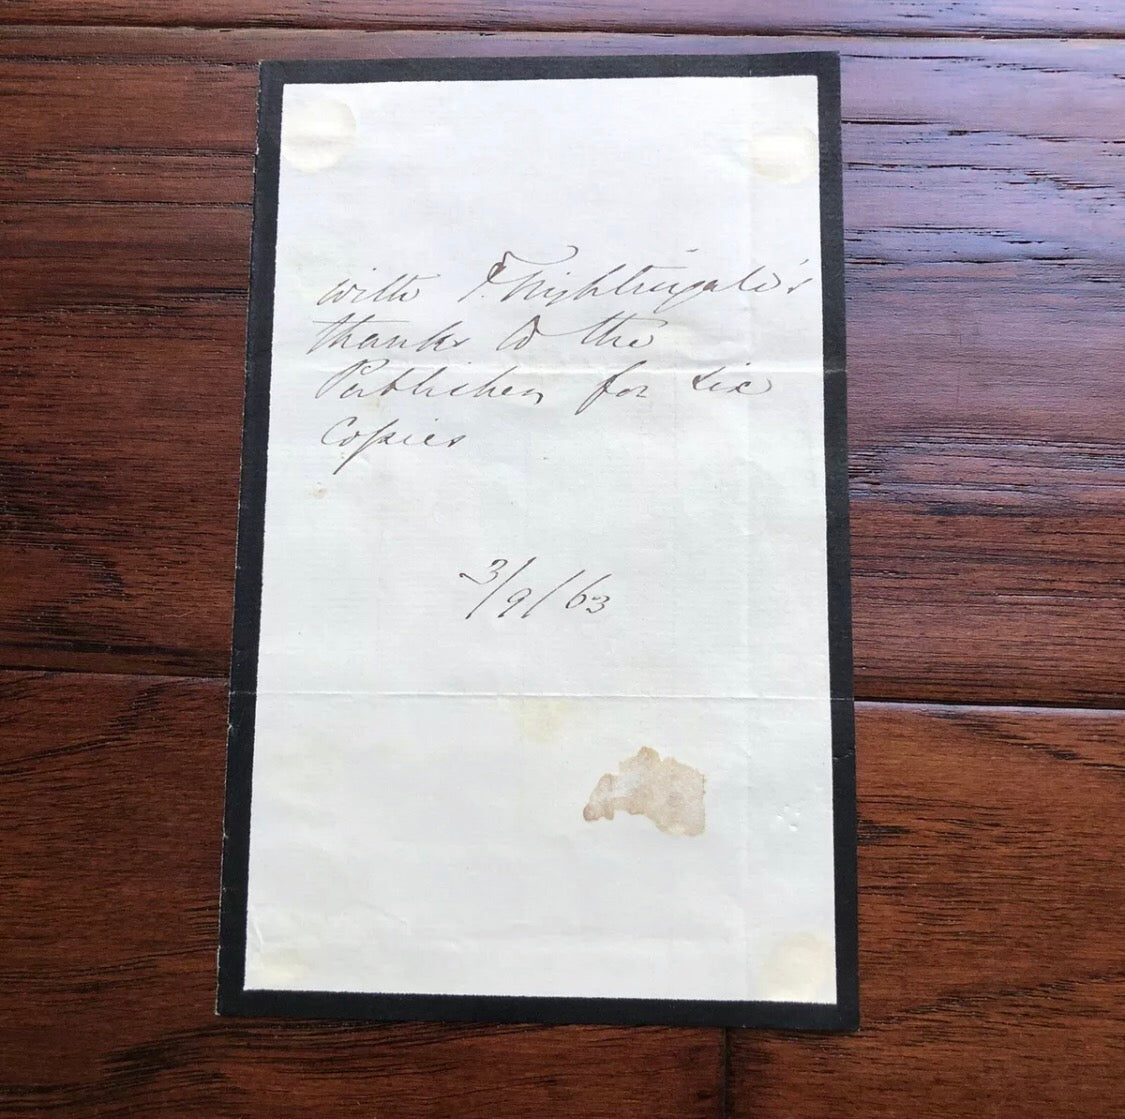 with F. Nightingale's
thanks to the
Publisher, for six
Copies
3/9/63